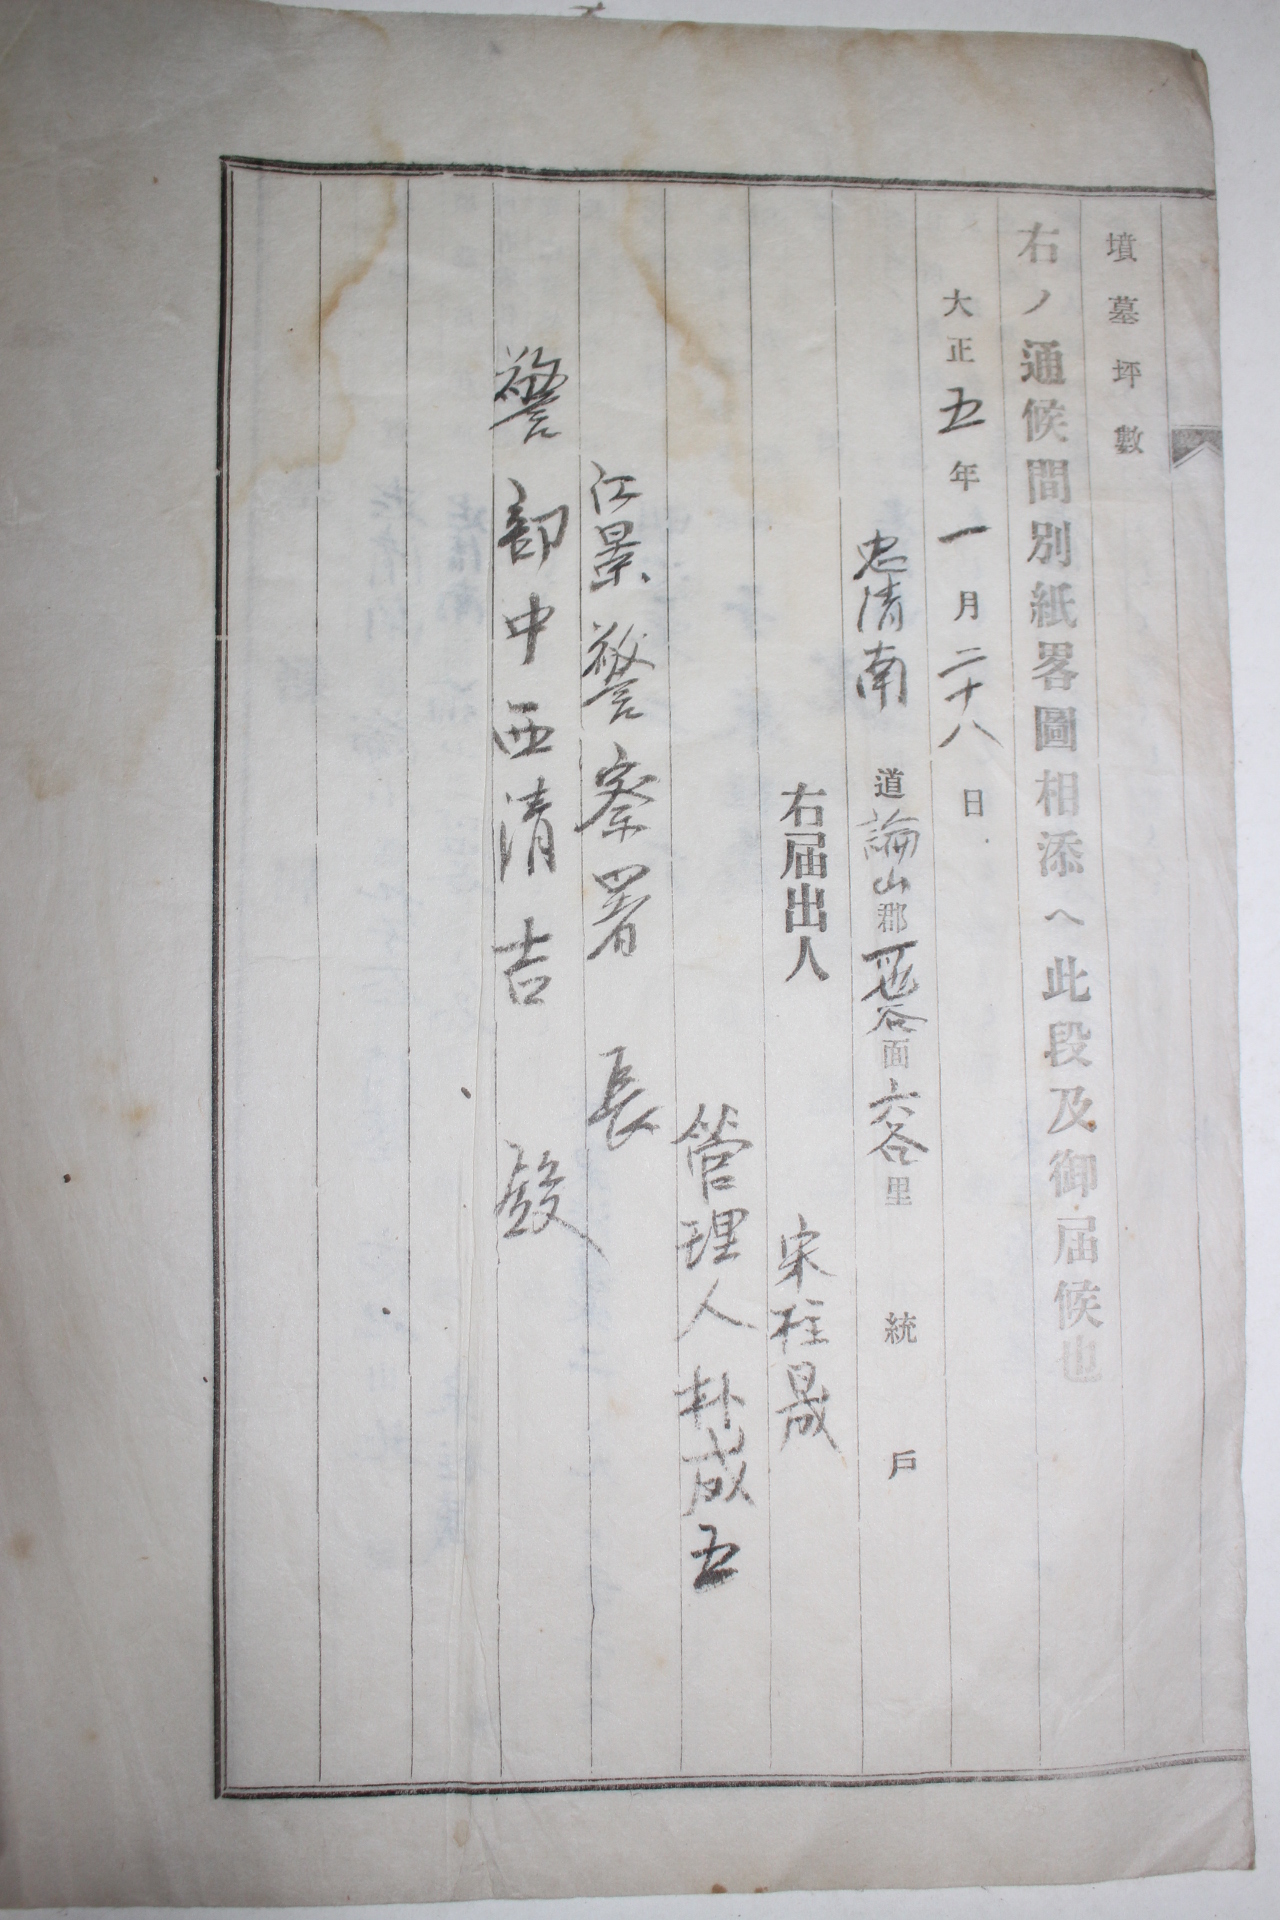 墳墓坪數
右ノ通候間別紙畧圖相添ヘ此段及御届候也
大正五年一月二十八日
忠清南道論山郡豆谷面六谷里　統　戶
右届出人　宋柱晟
管理人朴成五
江景警察署長
警部中西清吉殿